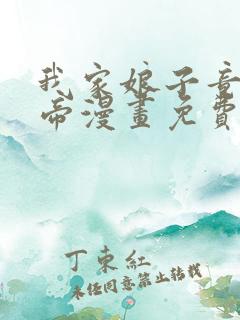 我家娘子竟
帝漫畫免費
丁東紅
未經同意禁止轉載